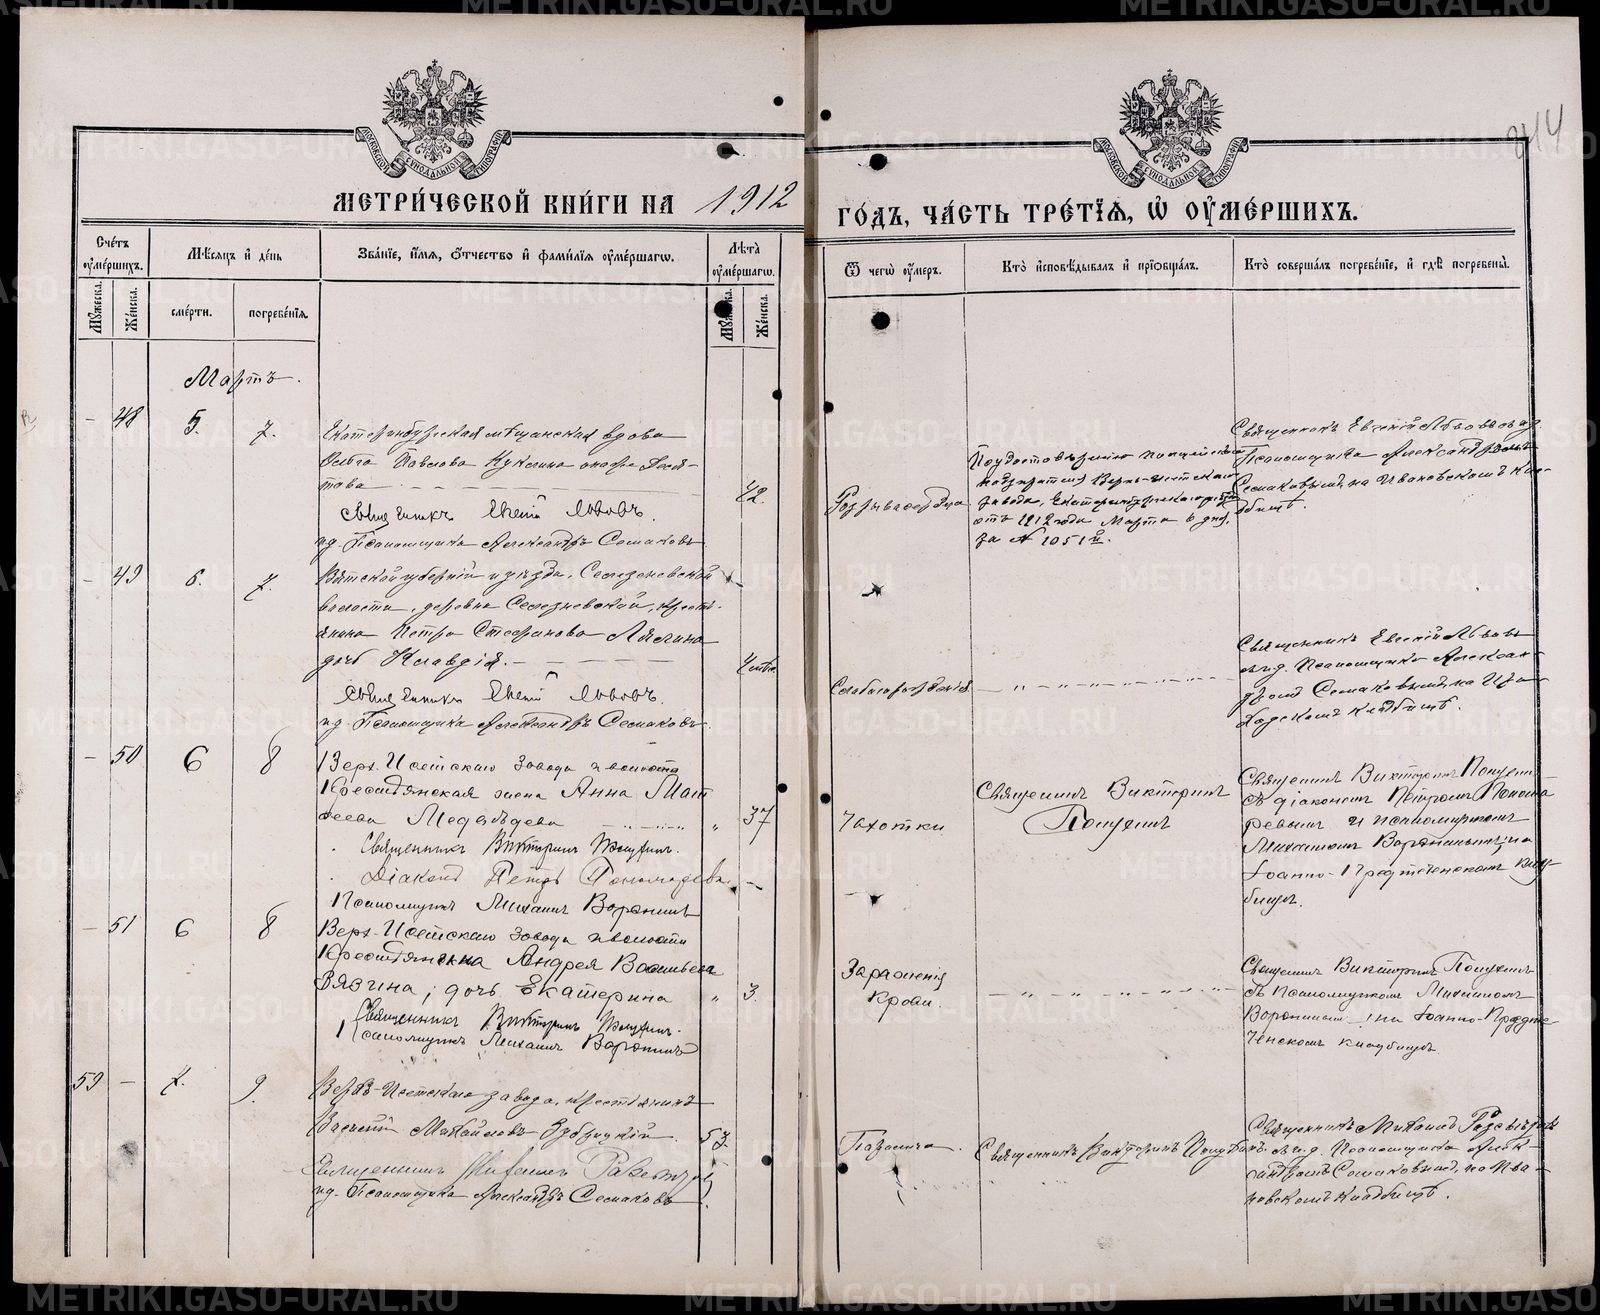 МЕТРИ́ЧЕСКОЙ КНИ́ГИ НА 1912
ГО́ДЪ, ЧА́СТЬ ТРЕ́ТІѦ, Ѡ҆ ОУ҆МЕ́РШИХЪ.
244
МОСКОВСКОЙ СУНОДАЛЬНОЙ ТИПОГРАФІИ
МОСКОВСКОЙ СУНОДАЛЬНОЙ ТИПОГРАФІИ
Сче́тъ оу҆ме́ршихъ.
Мꙋ́жеска.
Же́нска.
Мѣ́сѧцъ и҆ де́нь
сме́рти.
погребе́нїѧ.
Зва́нїе, и҆́мѧ, ѻ҆́тчество и҆ фами́лїѧ оу҆ме́ршагѡ.
Лѣ́та оу҆ме́ршагѡ.
Мꙋ́жеска.
Же́нска.
Ѿ чегѡ̀ оу҆́меръ.
Кто̀ и҆сповѣ́дывалъ и҆ прїѡбща́лъ.
Кто̀ соверша́лъ погребе́нїе, и҆ гдѣ̀ погребены̀.
Мартъ.
- 48 5. 7.
Екатеринбургская мѣщанская вдова
Ольга Павлова Куклина
това
42.
Священникъ Евгеній Львовъ.
и.д. Псаломщика Александръ Семаковъ
Разрыва сердца
По удостовѣренію полицейскаго
надзирателя Верхъ-Исетскаго
завода, Екатеринбургскаго уѣзда
отъ 1912 года Марта 6 дня,
за № 1051.
Священникъ Евгеній Львовъ съ и.д.
Псаломщика Александромъ
Семаковымъ, на Ивановскомъ клад-
бищѣ.
- 49 6. 7.
Вятской губерніи и уѣзда, Селезеневской
волости, деревни Селезневской, кресть-
янина Петра Стефанова Лялина
дочь Клавдія.
Священникъ Евгеній Львовъ.
и.д. Псаломщика Александръ Семаковъ.
Слабаго рожденія
Священникъ Евгеній Львовъ
съ и.д. Псаломщика Алексан-
дромъ Семаковымъ, на
кладбищѣ.
- 50 6 8
Верх-Исетскаго завода и волости
Крестьянская жена Анна Мат
феева Медвѣдева " 37
Священникъ Викторинъ
Діаконъ Петръ Пономаревъ
Псаломщикъ Михаилъ Воронинъ
Чахотки
Священникъ Викторинъ
Священникъ Викторинъ
съ діакономъ Петромъ Понома
ревымъ и псаломщикомъ
Михаиломъ Воронинымъ, на
Іоанно-Предтеченскомъ клад
бищѣ.
- 51 6 8
Верх-Исетскаго завода и волости
Крестьянина Андрея Васильева
Вязина, дочь Екатерина " 3.
Священникъ Викторинъ
Псаломщикъ Михаилъ Воронинъ
Зараженія
Крови.
Священникъ Викторинъ
съ Псаломщикомъ Михаиломъ
Воронинымъ на Іоанно-Предте
ченскомъ кладбищѣ
59 - 7. 9.
Верхъ-Исетскаго завода, крестьянинъ
Василій Михайловъ
53.
Священникъ Михаилъ
и.д. Псаломщика Александръ Семаковъ
Паралича.
Священникъ Викторинъ
Священникъ Михаилъ
съ и.д. Псаломщика Алек-
сандромъ Семаковымъ, на Ива-
новскомъ кладбищѣ.
METRIKI.GASO-URAL.RU